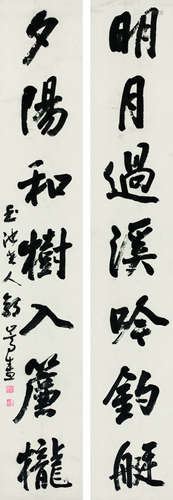 明月過溪吟釣艇
夕陽和樹入簾櫳
玉池老人郭嵩焘